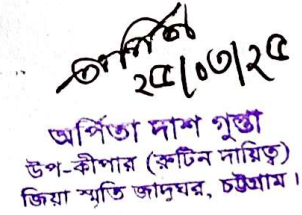 অর্পিতা
২৫/০৩/২৫
অর্পিতা দাশ গুপ্তা
উপ-কীপার (রুটিন দায়িত্ব)
জিয়া স্মৃতি জাদুঘর, চট্টগ্রাম।